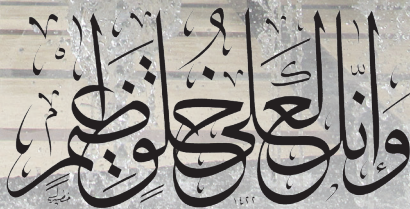 وَإِنَّكَ لَعَلَىٰ خُلُقٍ عَظِيمٍ
١٤٢٢